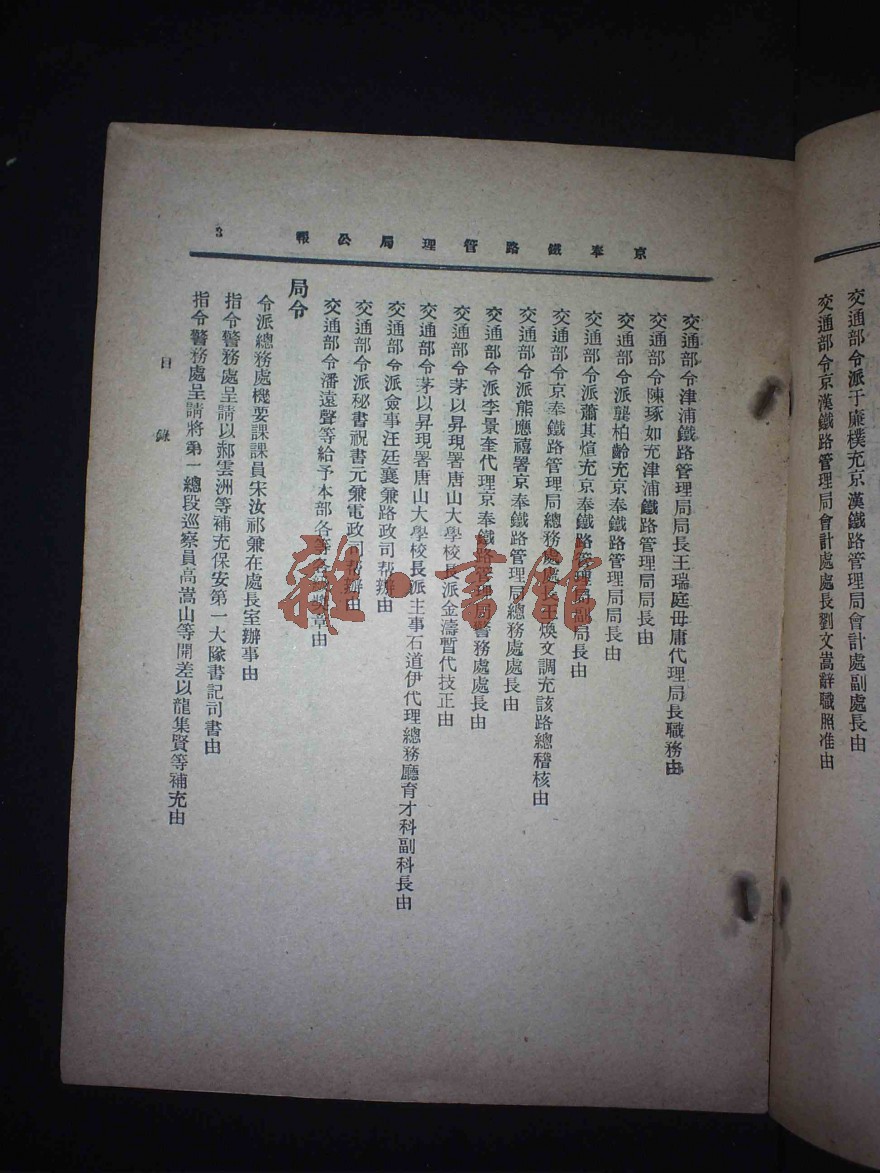 交通部令派于廉樸充京漢鐵路管理局會計處副處長由
交通部令京漢鐵路管理局會計處處長劉文嵩辭職照准由
京奉鐵路管理局公報
3
交通部令津浦鐵路管理局局長王瑞庭毋庸代理局長職務由
交通部令陳琢如充津浦鐵路管理局局長由
交通部令派龔柏齡充京奉鐵路管理局局長由
交通部令派蕭其煊充京奉鐵路管理局副局長由
交通部令京奉鐵路管理局總務處處長王煥文調充該路總稽核由
交通部令派熊應禧署京奉鐵路管理局總務處處長由
交通部令派李景奎代理京奉鐵路管理局警務處處長由
交通部令茅以昇現署唐山大學校長派金濤暫代技正由
交通部令茅以昇現署唐山大學校長派主事石道伊代理總務廳育才科副科長由
交通部令派僉事汪廷襄兼路政司幫辦由
交通部令派秘書祝書元兼電政司幫辦由
交通部令潘遠聲等給予本部各等各級獎章由
局令
令派總務處機要課課員宋汝祁兼在處長室辦事由
指令警務處呈請以郝雲洲等補充保安第一大隊書記司書由
指令警務處呈請將第一總段巡察員高嵩山等開差以龍集賢等補充由
目錄
雜·書館